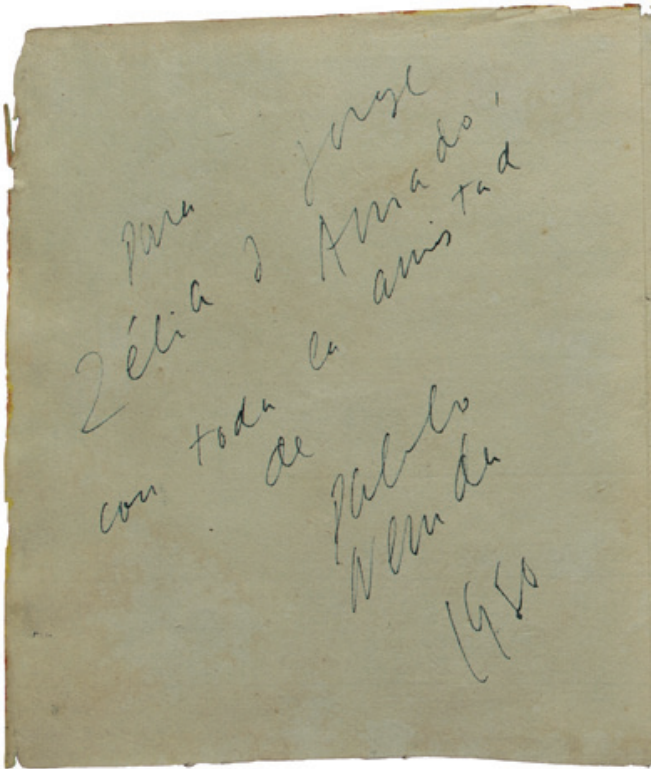 para Jorge
Zélia y Amado,
con toda la amistad
de
Pablo
Neruda
1950